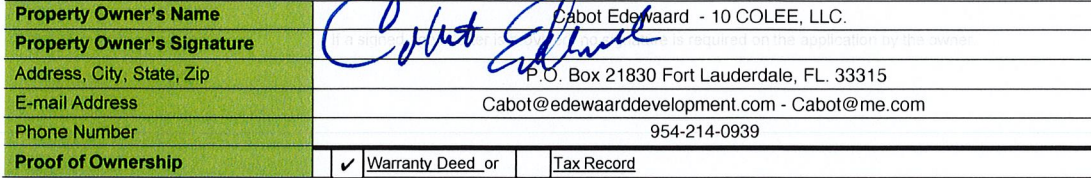 Property Owner's Name Cabot Edewaard - 10 COLEE, LLC.
Property Owner's Signature Cabot Edewaard is required on the application by the owner
Address, City, State, Zip P.O. Box 21830 Fort Lauderdale, FL. 33315
E-mail Address Cabot@edewaarddevelopment.com - Cabot@me.com
Phone Number 954-214-0939
Proof of Ownership ✓ Warranty Deed or Tax Record